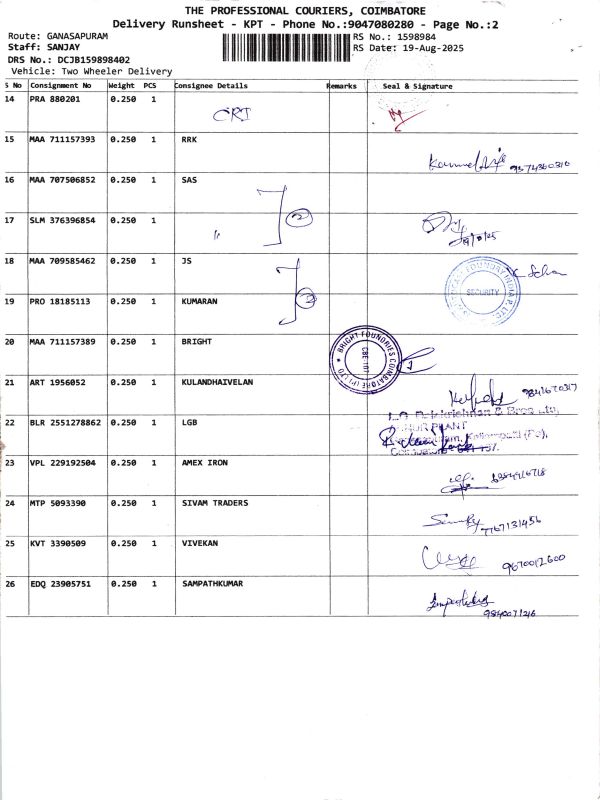 THE PROFESSIONAL COURIERS, COIMBATORE
Delivery Runsheet - KPT - Phone No.:9047080280 - Page No.:2
Route: GANASAPURAM
RS No.: 1598984
Staff: SANJAY
RS Date: 19-Aug-2025
DRS No.: DCJB159898402
Vehicle: Two Wheeler Delivery
S No Consignment No Weight PCS Consignee Details Remarks Seal & Signature
14 PRA 880201 0.250 1
CRI
15 MAA 711157393 0.250 1 RRK
16 MAA 707506852 0.250 1 SAS
17 SLM 376396854 0.250 1 2
18 MAA 709585462 0.250 1 JS
SECURITY
19 PRO 18185113 0.250 1 KUMARAN 2
20 MAA 711157389 0.250 1 BRIGHT
BRIGHT FOUNDRIES COIMBATORE (P) LTD
21 ART 1956052 0.250 1 KULANDHAIVELAN
22 BLR 2551278862 0.250 1 LGB
23 VPL 229192504 0.250 1 AMEX IRON
24 MTP 5093390 0.250 1 SIVAM TRADERS
7767131456
25 KVT 3390509 0.250 1 VIVEKAN
9670012600
26 EDQ 23905751 0.250 1 SAMPATHKUMAR
9840071216